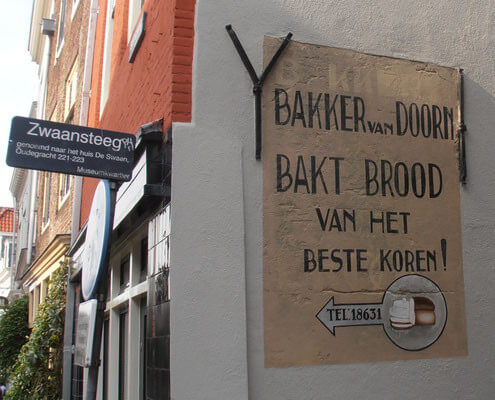 Zwaansteeg
genoemd naar het huis De Swaan,
Oudegracht 221-223
Museumkwartier
BAKKER VAN DOORN
BAKT BROOD
VAN HET
BESTE KOREN!
TEL. 18631